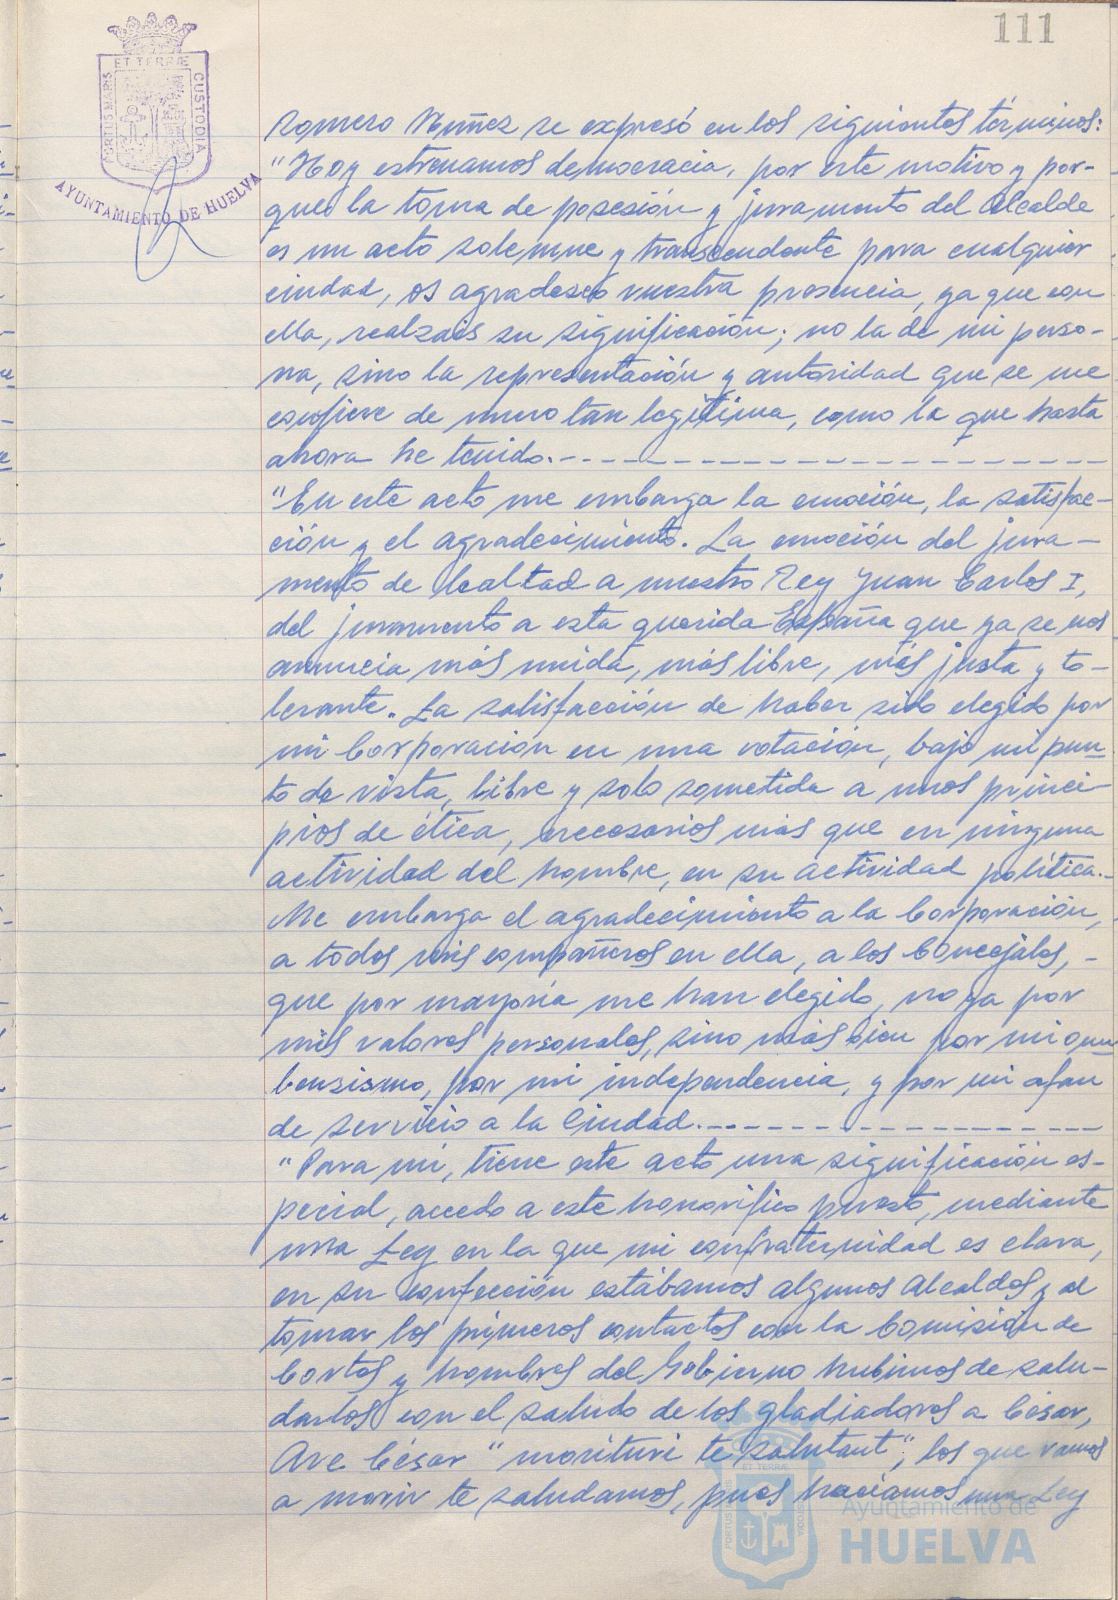 111
ET TERRÆ
PORTUS MARIS
CUSTODIA
AYUNTAMIENTO DE HUELVA
Romero Núñez se expresó en los siguientes términos:
"Hoy estrenamos democracia, por este motivo y por-
que la toma de posesión y juramento del Alcalde
es un acto solemne y transcendente para cualquier
ciudad, os agradesco vuestra presencia, ya que con
ella, realzais su significación; no la de mi perso-
na, sino la representación y autoridad que se me
confiere de nuevo tan legítima, como la que hasta
ahora he tenido.-----------
"En este acto me embarga la emoción, la satisfac-
ción y el agradecimiento. La emoción del jura-
mento de lealtad a nuestro Rey Juan Carlos I,
del juramento a esta querida España que ya se nos
anuncia más unida, más libre, más justa y to-
lerante. La satisfacción de haber sido elegido por
mi Corporación en una votación, bajo mi pun-
to de vista, libre y solo sometida a unos princi-
pios de ética, necesarios más que en ninguna
actividad del hombre, en su actividad política.-
Me embarga el agradecimiento a la Corporación,
a todos mis compañeros en ella, a los Concejales, -
que por mayoría me han elegido, no ya por
mis valores personales, sino más bien por mi onu
bensismo, por mi independencia, y por mi afan
de servicio a la Ciudad.-----------
"Para mí, tiene este acto una significación es-
pecial, accedo a este honorífico puesto, mediante
una Ley en la que mi confraternidad es clara,
en su confección estábamos algunos Alcaldes y al
tomar los primeros contactos con la Comisión de
Cortes y hombres del Gobierno hubimos de salu-
darlos con el saludo de los gladiadores a César,
Ave César "morituri te salutant"; los que vamos
a morir te saludamos, pues haciamos una Ley
ET TERRÆ
PORTUS MARIS
CUSTODIA
Ayuntamiento de
HUELVA